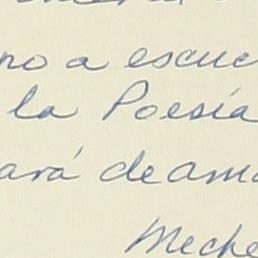 no a escuc
la Poesía
ará de am
Meche